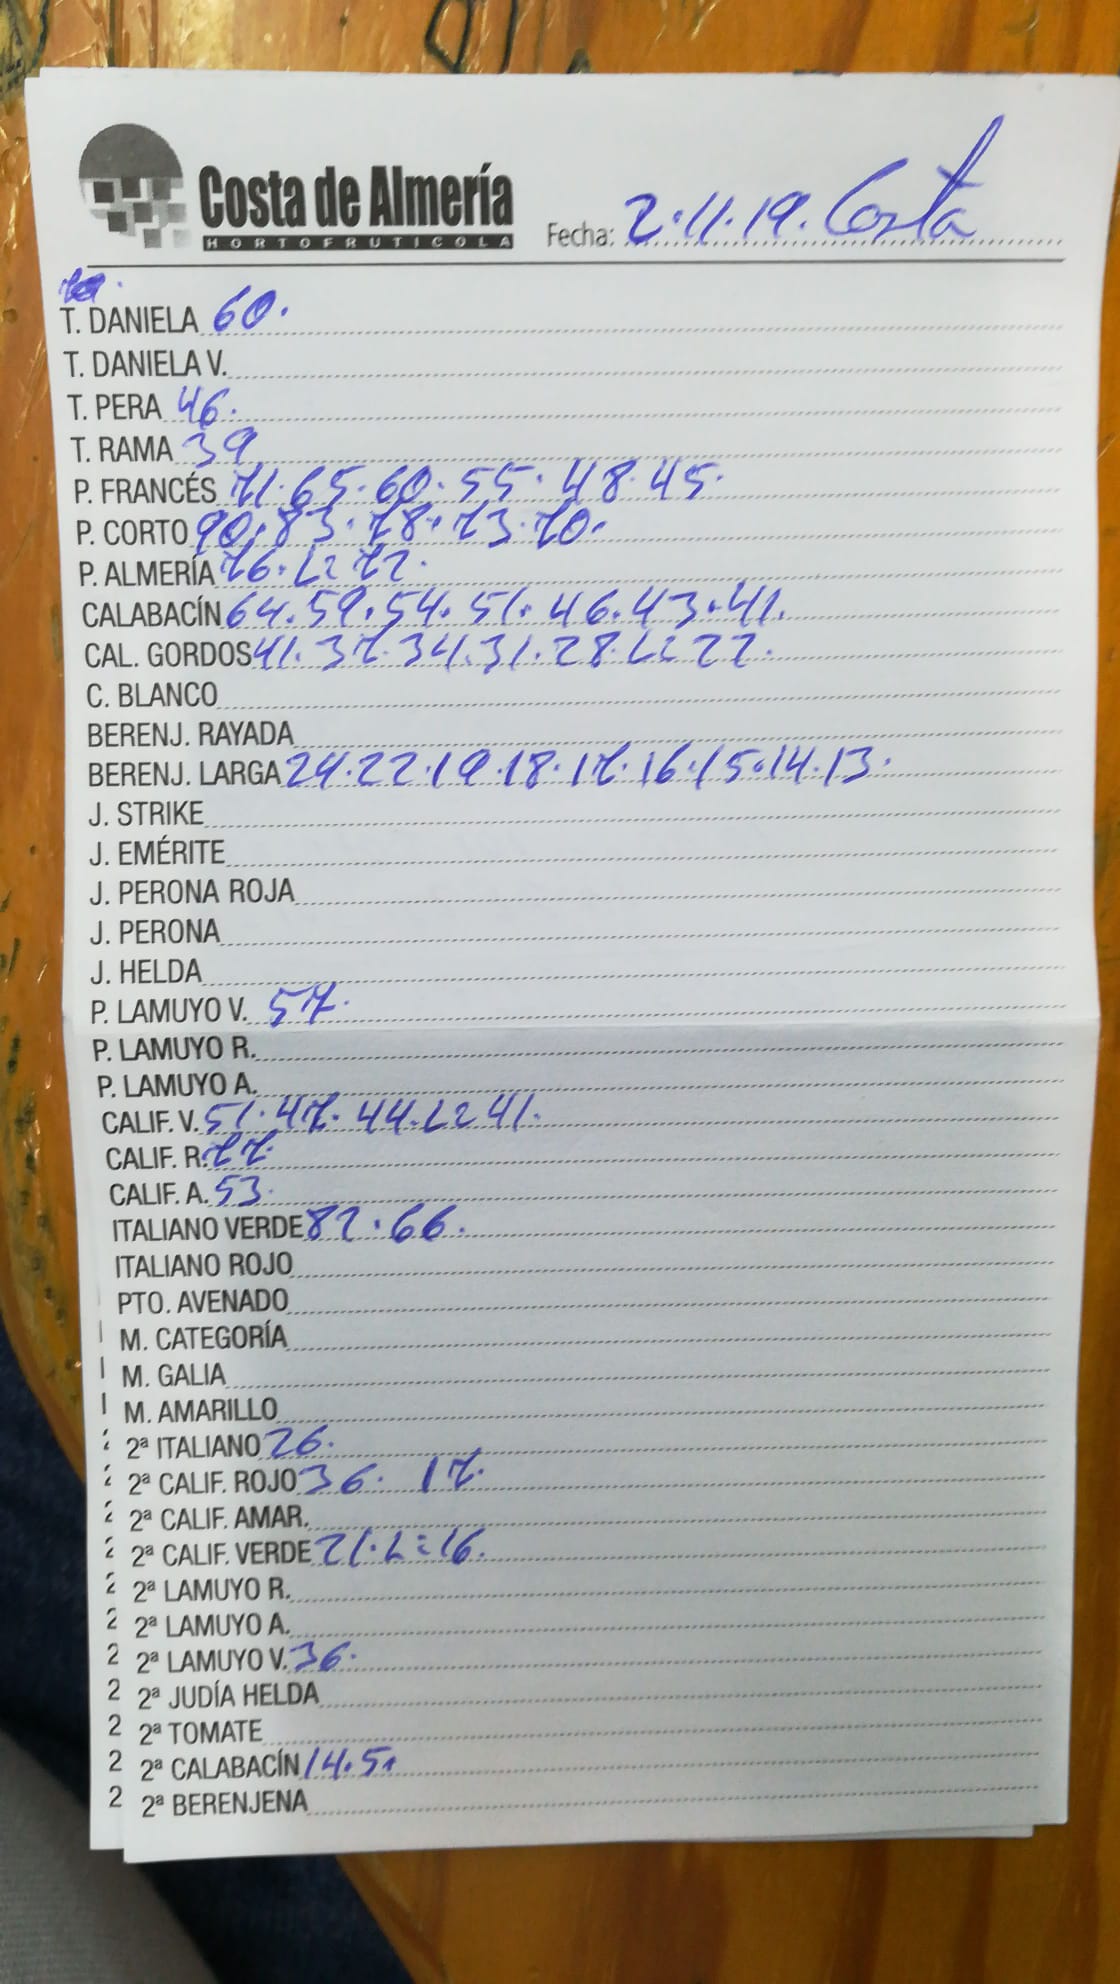 Costa de Almería
HORTOFRUTICOLA
Fecha: 2.11.19. Costa
T. DANIELA 60.
T. DANIELA V.
T. PERA 46.
T. RAMA 39
P. FRANCÉS 71.65.60.55.48.45.
P. CORTO 90.83.78.73.70.
P. ALMERÍA 76. 72.
CALABACÍN 64.59.54.51.46.43.41.
CAL. GORDOS 41.37.34.31.28. 22.
C. BLANCO
BERENJ. RAYADA
BERENJ. LARGA 24.22.19.18.17.16.15.14.13.
J. STRIKE
J. EMÉRITE
J. PERONA ROJA
J. PERONA
J. HELDA
P. LAMUYO V. 57.
P. LAMUYO R.
P. LAMUYO A.
CALIF. V. 51.47.44. 41.
CALIF. R. 77.
CALIF. A. 53.
ITALIANO VERDE 82.66.
ITALIANO ROJO
PTO. AVENADO
M. CATEGORÍA
M. GALIA
M. AMARILLO
2ª ITALIANO 26.
2ª CALIF. ROJO 36. 17.
2ª CALIF. AMAR.
2ª CALIF. VERDE 21. 16.
2ª LAMUYO R.
2 2ª LAMUYO A.
2 2ª LAMUYO V. 36.
2 2ª JUDÍA HELDA
2 2ª TOMATE
2 2ª CALABACÍN 14.5
2 2ª BERENJENA